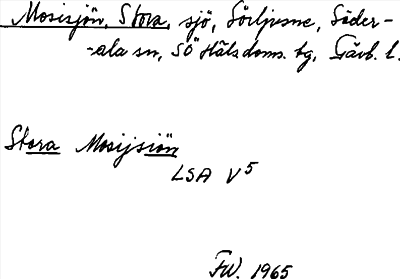 Mosisjön, Stora, sjö, Söljusne, Söder-
-ala sn, SÖ Hälsdoms. tg, Gävb. l.
Stora Mosijsiön
LSA V5
FW. 1965